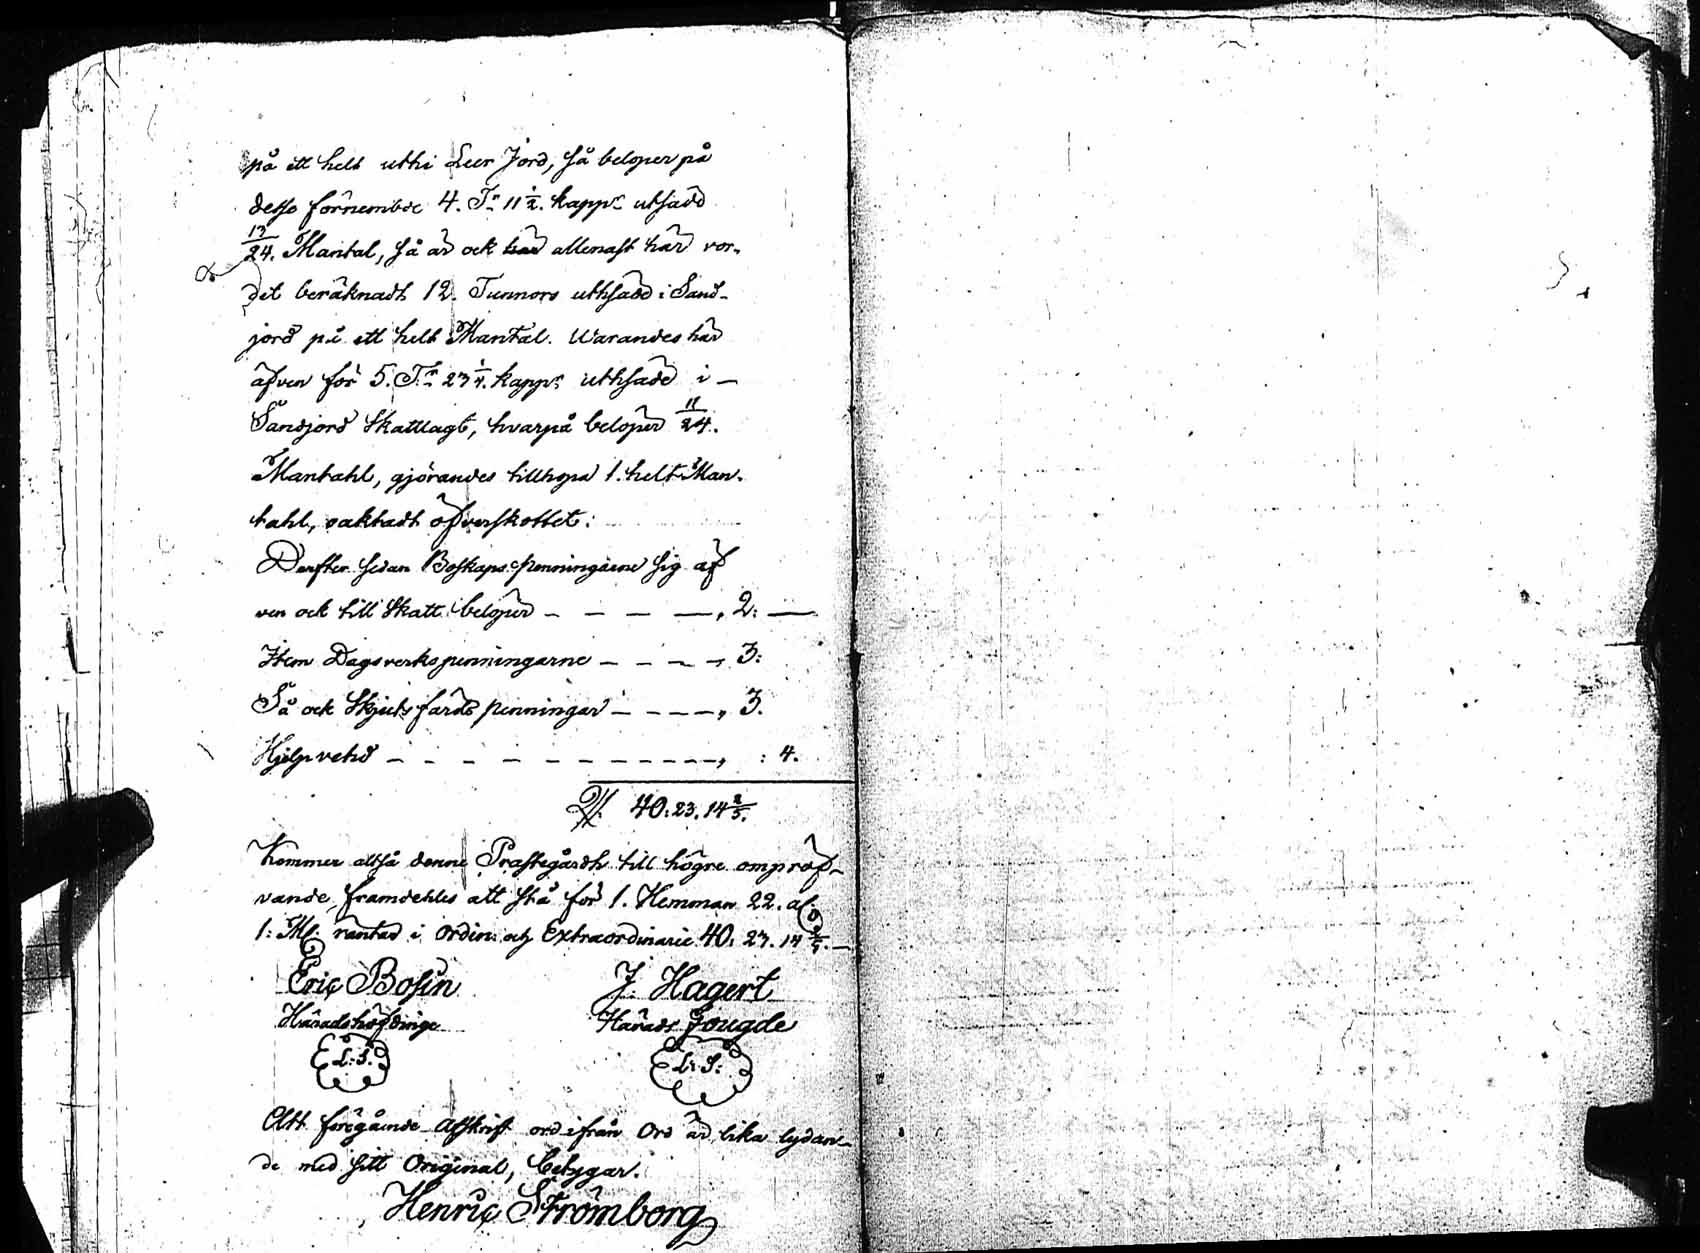 på ett helt uthi Leer Jord, så beloper på
desse förnembde 4. Tr 11 1/2. kappr utsäd
13/24. Mantal, så är ock allenast här vor-
det beräknadt 12. Tunnors uthsäde i Sand-
jord på ett helt Mantal. Warandes här
äfven för 5. Tr 23 1/4. kappr uthsäde i —
Sandjord Skattlagt, hvarpå beloper 11/24.
Mantahl, gjörandes tillhopa 1. helt Man-
tahl, oaktadt öfverskottet:
Derefter sedan Boskaps penningarne sig äf
ven ock till Skatt beloper — — — — „ 2: —
Item Dagsverks penningarne — — — — „ 3:
Så ock Skjutsfärds penningar — — — — „ 3.
Hjelpvehd — — — — — — — — — „ : 4.
40: 23. 14 2/5.
Kommer altså denne Prästegårdh till högre ompröf-
vande, framdehles att stå för 1. Hemman 22. al:
1: Ml: räntar i ordin: och Extraordinarie 40: 23. 14 2/5. —
Eric Bosin J. Hagert
Häradshöfdinge Härads Fougde
L: S. L: S:
Att föregående Afskrift ord ifrån Ord är lika lydan-
de med sitt Original, betygar.
Henric Strömborg